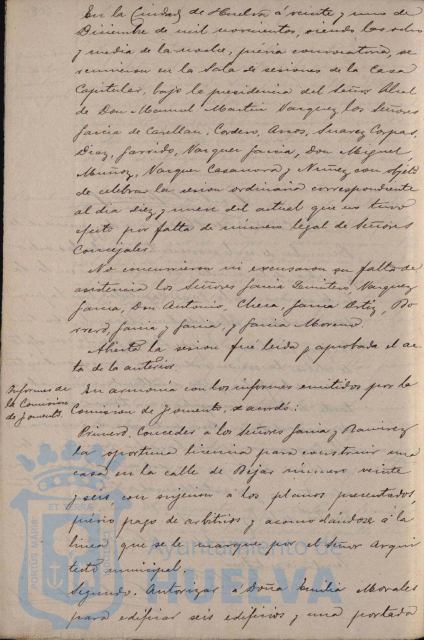 En la Ciudad de Huelva á veinte y uno de
Diciembre de mil novecientos, siendo las ocho
y media de la noche, prévia convocatoria, se
reunieron en la Sala de sesiones de la Casa
Capitular, bajo la presidencia del Señor Alcal
de Don Manuel Martin Vazquez los Señores
Garcia de Casellan, Cordero, Suarez Corpas,
Diaz, Garrido, Vazquez Garcia, Don Miguel
Muñoz, Vazquez Casanova y Nuñez con objeto
de celebrar la sesion ordinaria correspondiente
al dia diez y nueve del actual que no tuvo
efecto por falta de número legal de Señores
Concejales.
No concurrieron ni excusaron su falta de
asistencia los Señores Garcia Quintero, Vazquez
Garcia, Don Antonio, Checa, Garcia Ortiz, Bo
rrero, Garcia y Garcia, y Garcia Moreno.
Abierta la sesion fué leida y aprobada el ac
ta de la anterior.
Informes de
la Comision
de Fomento.
En armonía con los informes emitidos por la
Comision de Fomento, se acordó:
Primero. Conceder á los Señores Garcia y Ramirez
la oportuna licencia para construir una
casa en la calle de Bejar número veinte
y seis con sujecion á los planos presentados,
prévio pago de arbitrios y acomodándose á la
línea que se le marque por el Señor Arqui
tecto municipal.
Segundo. Autorizar á Doña Emilia Morales
para edificar seis edificios y una portada
Ayuntamiento de
HUELVA